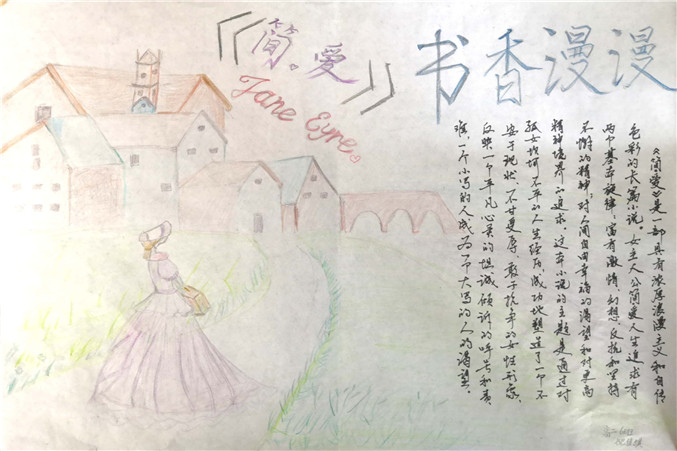 《简。爱》
Jane Eyre
书香漫漫
《简爱》是一部具有浓厚浪漫主义和自传
色彩的长篇小说。女主人公简爱人生追求有
两个基本旋律：富有激情、幻想、反抗和坚持
不懈的精神；对人间自由幸福的渴望和对更高
精神境界的追求。这本小说的主题是通过对
孤女坎坷不平的人生经历，成功地塑造了一个不
安于现状、不甘受辱、敢于抗争的女性形象，
反映一个平凡心灵的坦诚倾诉的呼号和责
难，一个小写的人成为一个大写的人的渴望。